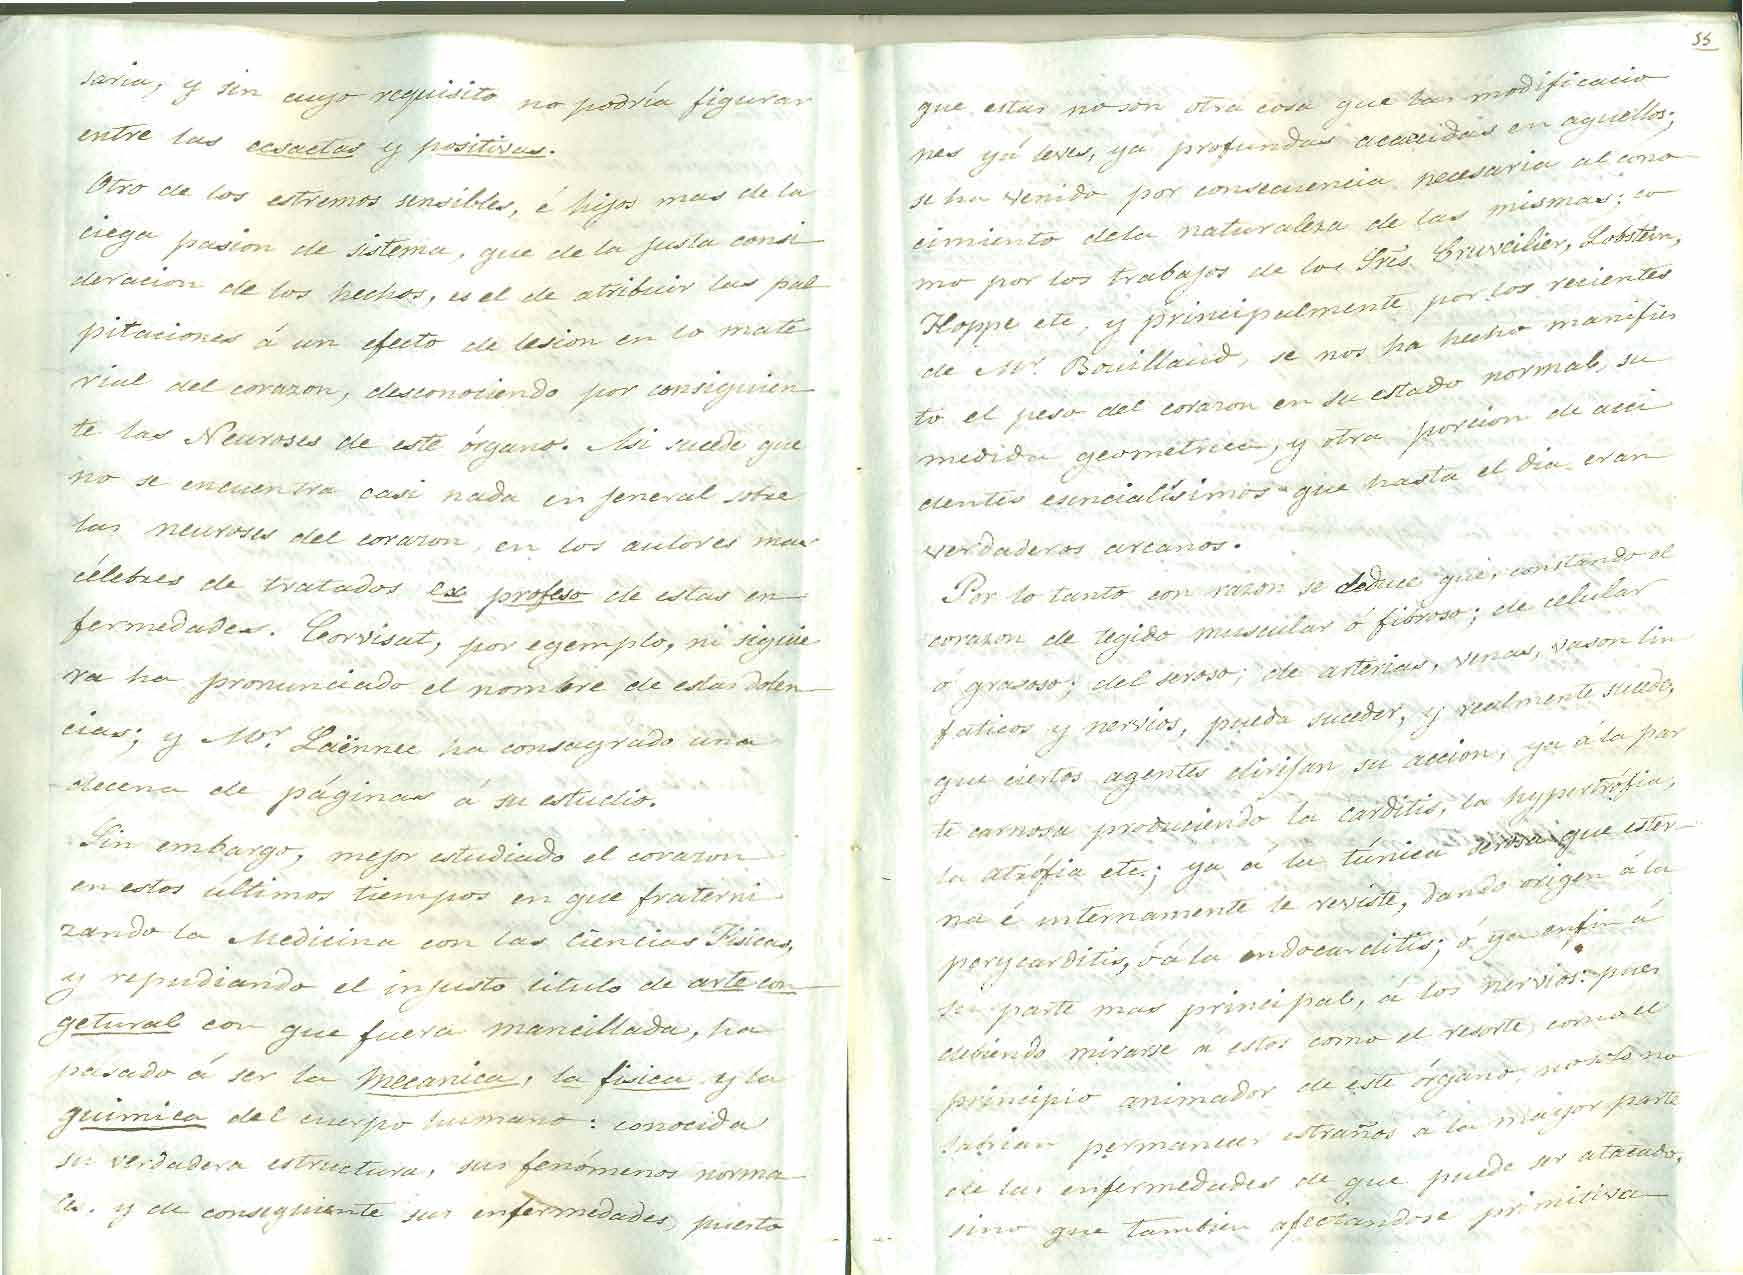 saria, y sin cuyo requisito no podría figurar
entre las ecsactas y positivas.
Otro de los estremos sensibles, é hijos mas de la
ciega pasion de sistema, que de la justa consi
deracion de los hechos, es el de atribuir las pal
pitaciones á un efecto de lesion en lo mate
rial del corazon, desconociendo por consiguien
te las Neuroses de este órgano. Asi sucede que
no se encuentra casi nada en jeneral sobre
las neuroses del corazon, en los autores mas
célebres de tratados ex profeso de estas en
fermedades. Corvisat, por egemplo, ni siquie
ra ha pronunciado el nombre de estas dolen
cias; y Mr. Laënnec ha consagrado una
decena de páginas á su estudio.
Sin embargo, mejor estudiado el corazon
en estos últimos tiempos en que fraterni
zando la Medicina con las Ciencias Fisicas,
y repudiando el injusto titulo de arte con
getural con que fuera mancillada, ha
pasado á ser la mecanica, la fisica y la
quimica del cuerpo humano: conocida
su verdadera estructura, sus fenómenos norma
les. y de consiguiente sus enfermedades, puesto
55
que estas no son otra cosa que las modificacio
nes yá leves, ya profundas acaecidas en aquellos;
se ha venido por consecuencia necesaria al cono
cimiento dela naturaleza de las mismas; co
mo por los trabajos de los Sres. Cruveilier, Lobstein,
Hoppe etc, y principalmente por los recientes
de Mr. Bouillaud, se nos ha hecho manifies
to el peso del corazon en su estado normal, su
medida geometrica, y otra porcion de acci
dentes esencialísimos que hasta el dia eran
verdaderos arcanos.
Por lo tanto con razon se deduce que, constando el
corazon de tegido muscular ó fibroso; de celular
ó grasoso; del seroso; de arterias, venas, vasos lin
faticos y nervios, pueda suceder, y realmente sucede,
que ciertos agentes dirijan su accion, ya á la par
te carnosa produciendo la carditis, la hypertrófia,
la atrófia etc.; ya á la túnica serosa que ester
na é internamente le reviste, dando origen á la
perycarditis, ó á la endocarditis; ó ya enfin á
su parte mas principal, á los nervios: pues
debiendo mirarse a estos como el resorte, como el
principio animador de este órgano, no solo no
podrian permanecer estraños á la mayor parte
de las enfermedades de que puede ser atacado,
sino que tambien afectandose primitiva